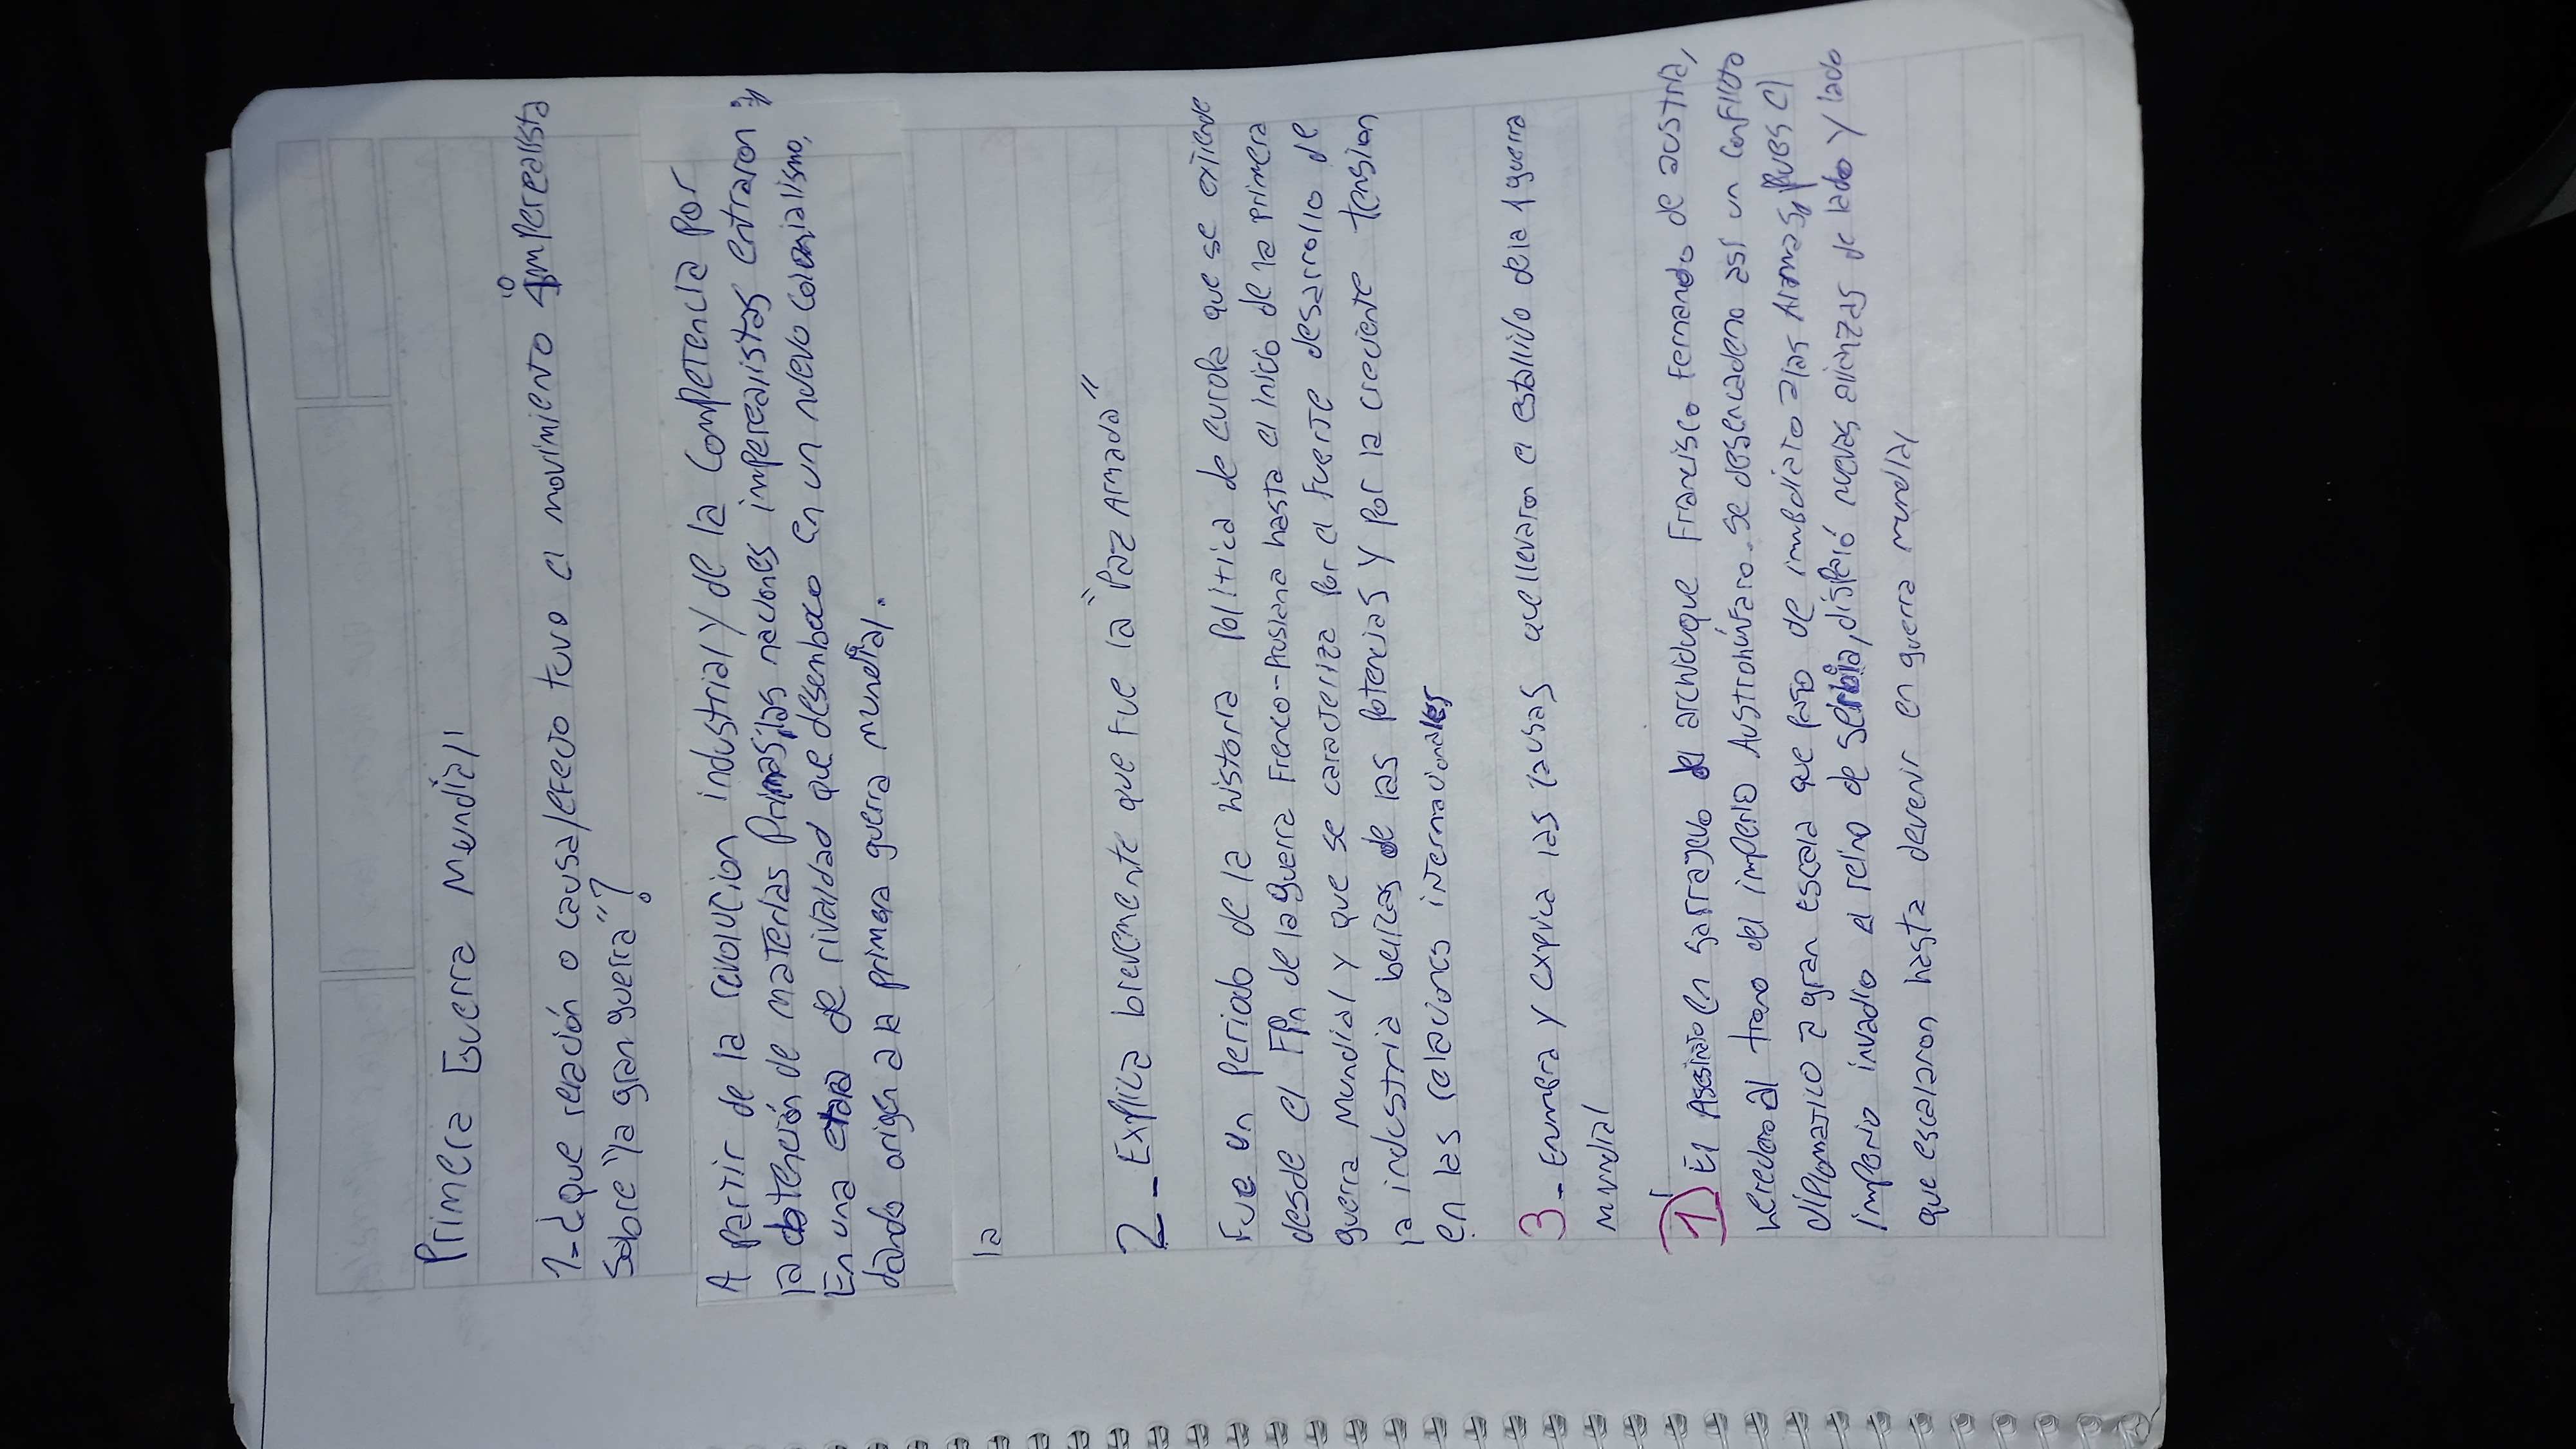 Primera Guerra Mundial
1-¿que relación o causa/efecto tuvo el movimiento imperealista
sobre "la gran guerra"?
A partir de la revolucion industrial y de la Competencia por
la obtención de materias primas, las naciones imperealistas entraron
En una etapa de rivalidad que desemboco en un nuevo colonialismo,
dando origen a la primera guerra mundial.
la
2- Explica brevemente que fue la "Paz Armada"
Fue un periodo de la historia politica de europa que se extiende
desde el Fin de la guerra Franco-Prusiana hasta el inicio de la primera
guerra mundial y que se caracteriza por el fuerte desarrollo de
la industria belicas de las potencias y por la creciente tension
en las relaciones internacionales
3- Enumera y explica las causas que llevaron el estallido de la 1 guerra
mundial
1) El Asesinato en sarajevo del archiduque Francisco Fernando de austria,
heredero al trono del imperio Austrohúngaro. se desencadeno así un conflicto
diplomatico a gran escala que paso de imbediato a las Armas, pues el
imperio invadio el reino de serbia, disparó nuevas alianzas de lado y lado
que escalaron hasta devenir en guerra mundial